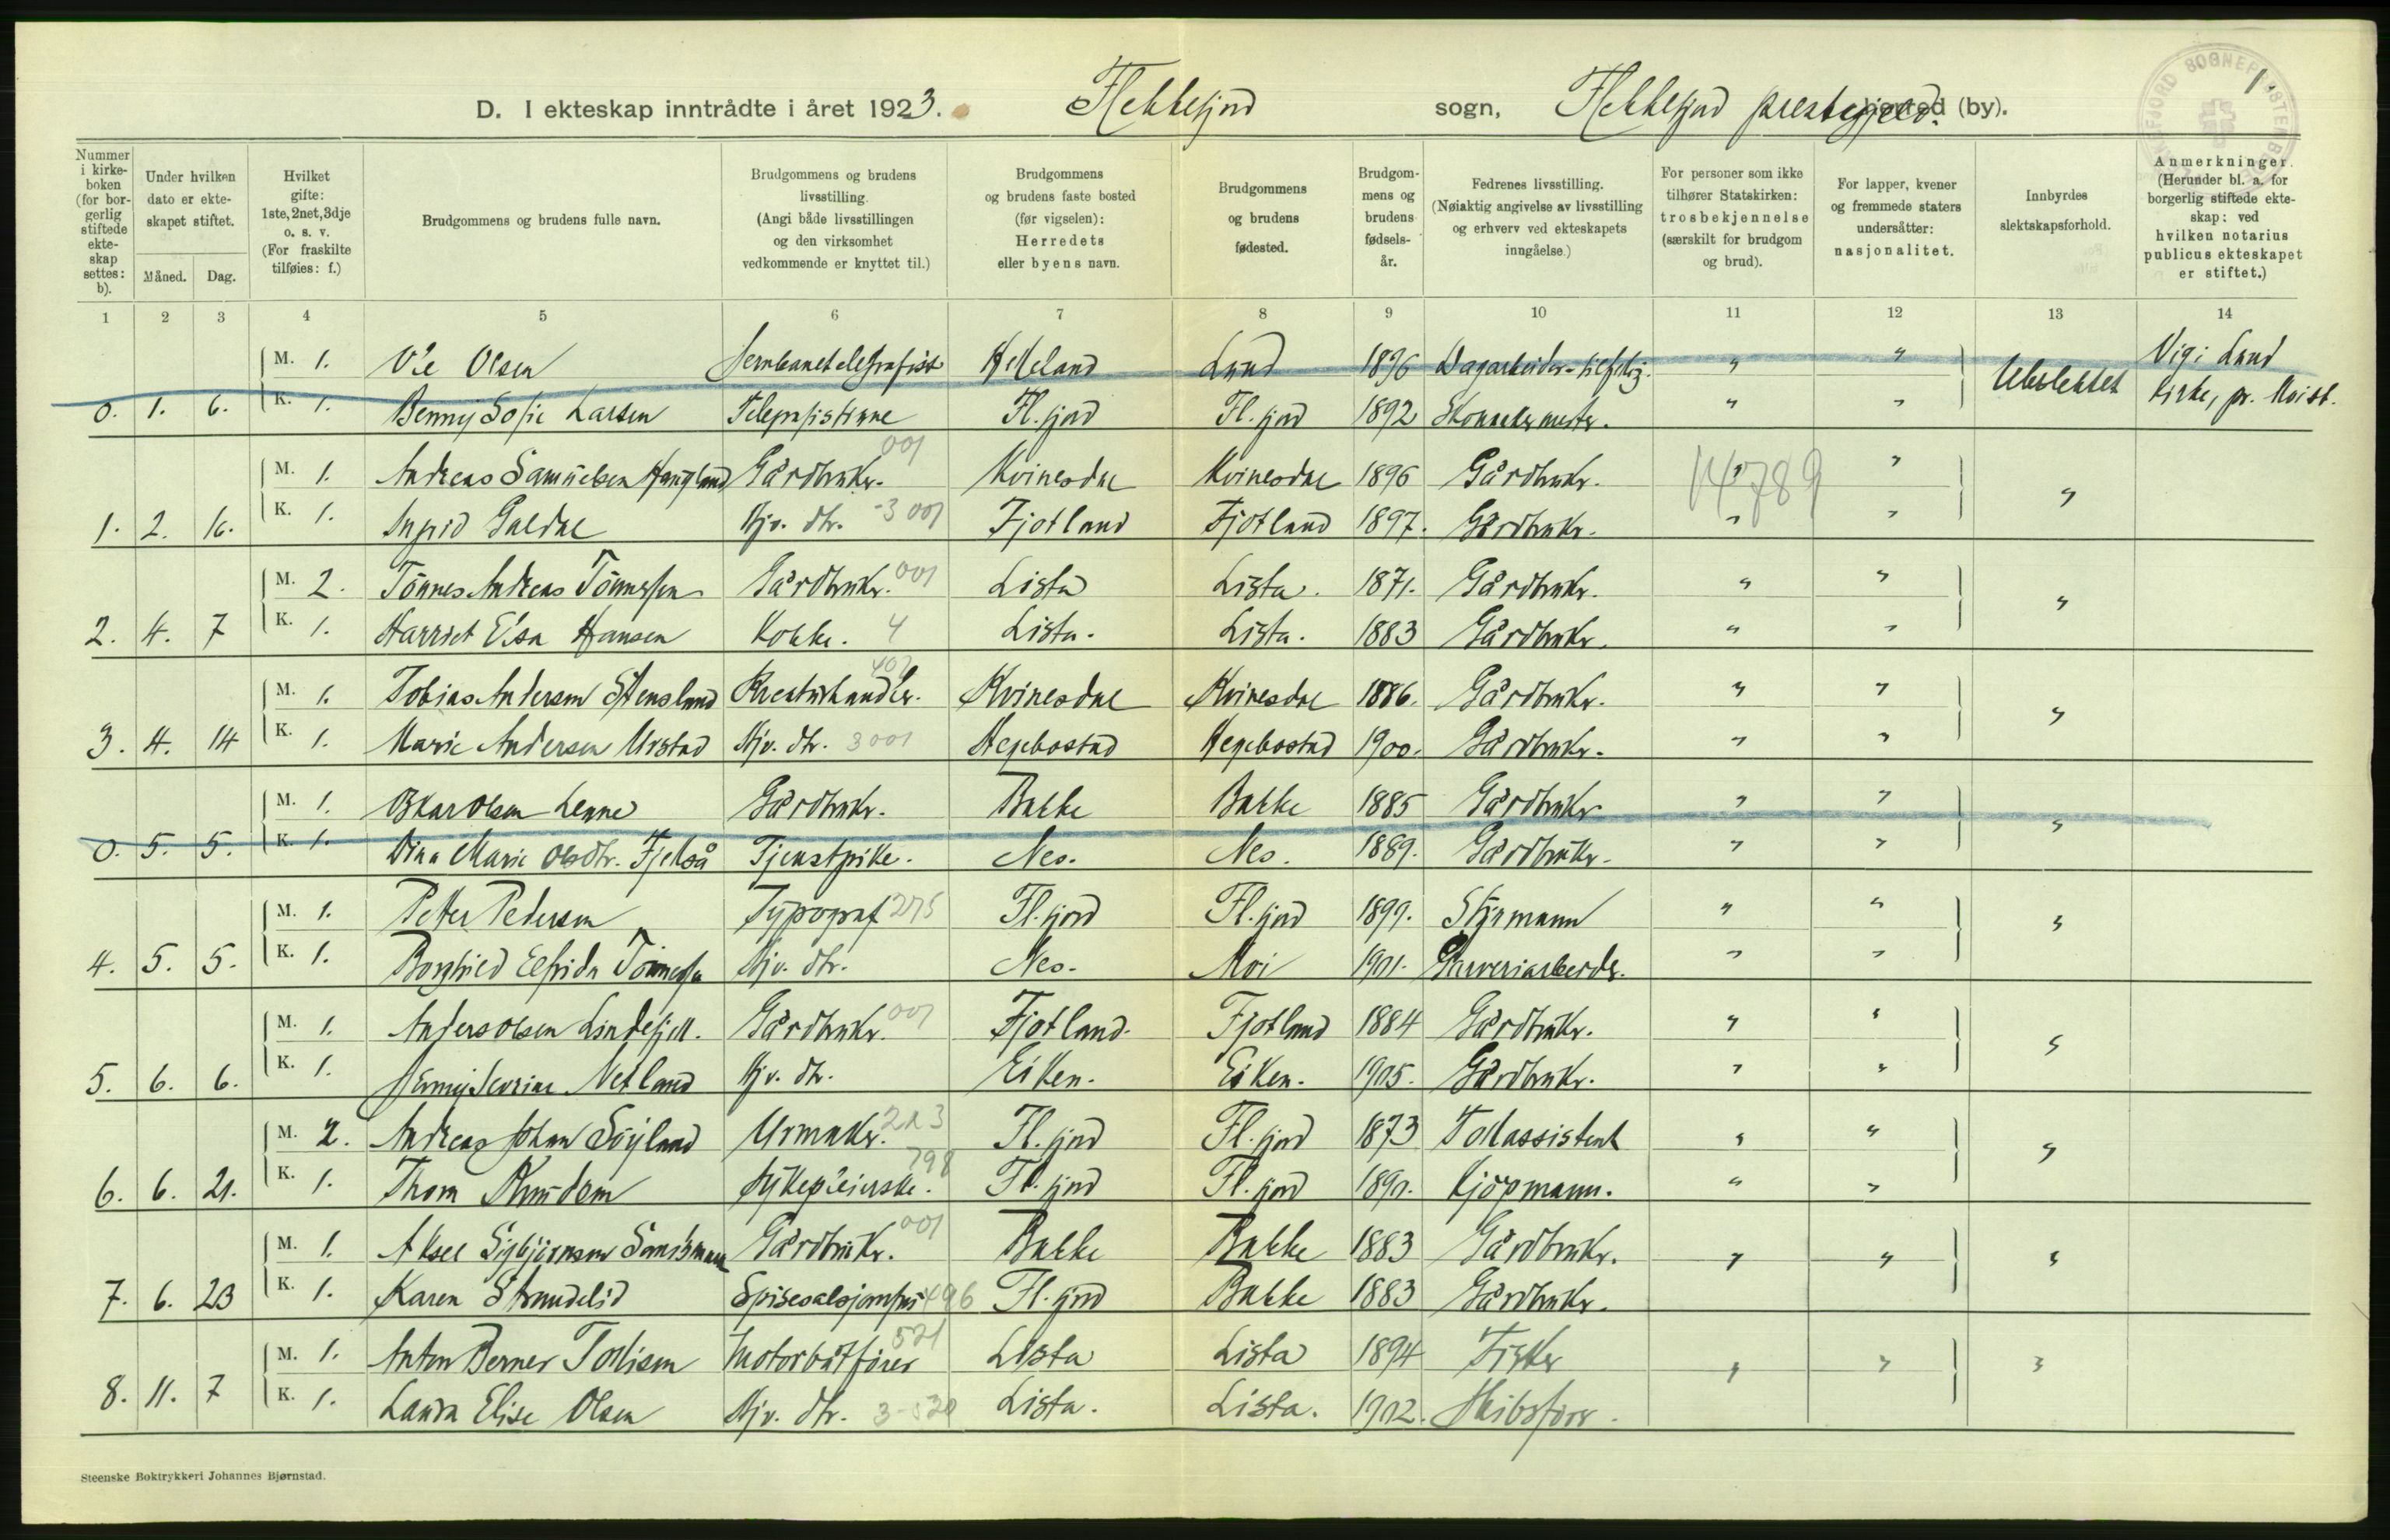 1.
D. I ekteskap inntrådte i året 1923. Flekkefjord sogn, Flekkefjord prestegjeld. herred (by).
Nummer i kirkeboken (for borgerlig stiftede ekteskap settes: b).
Under hvilken dato er ekteskapet stiftet.
Måned. Dag.
Hvilket gifte: 1ste, 2net, 3dje o. s. v. (For fraskilte tilføies: f.)
Brudgommens og brudens fulle navn.
Brudgommens og brudens livsstilling. (Angi både livsstillingen og den virksomhet vedkommende er knyttet til.)
Brudgommens og brudens faste bosted (før vigselen): Herredets eller byens navn.
Brudgommens og brudens fødested.
Brudgommens og brudens fødselsår.
Fedrenes livsstilling. (Nøiaktig angivelse av livsstilling og erhverv ved ekteskapets inngåelse.)
For personer som ikke tilhører Statskirken: trosbekjennelse (særskilt for brudgom og brud).
For lapper, kvener og fremmede staters undersåtter: nasjonalitet.
Innbyrdes slektskapsforhold.
Anmerkninger. (Herunder bl. a. for borgerlig stiftede ekteskap: ved hvilken notarius publicus ekteskapet er stiftet.)
1 2 3 4 5 6 7 8 9 10 11 12 13 14
M. 1. Ole Olsen Jernbanetelegrafist Helleland Lund 1896 Dagarbeider " " Ubeslektet Vigi Lund
0. 1. 6. K. 1. Benny Sofie Larsen Telegrafistinne Fl.fjord Fl.fjord 1892 Skomakermester. " " kirke, pr. Moi st.
M. 1. Andreas Samuelsen Haugland Gårdbruker. 001 Kvinesdal Kvinesdal 1896 Gårdbruker. " " "
14789
1. 2. 16. K. 1. Ingrid Galdal Hjv. dtr. -3 001 Fjotland Fjotland 1897. Gårdbruker. " "
M. 2. Tönnes Andreas Tönnessen Gårdbruker. 001 Lista Lista. 1871. Gårdbruker. " " "
2. 4. 7 K. 1. Harriet Elsa Hansen Kokke. 4 Lista. Lista. 1883 Gårdbruker. " "
M. 1. Tobias Andersen Stensland Kreaturhandler. 407 Kvinesdal Kvinesdal 1886. Gårdbruker. " " "
3. 4. 14 K. 1. Marie Andersen Urstad Hjv. dtr. 3001 Hegebostad Hegebostad 1900. Gårdbruker. " "
M. 1. Oskar Olsen Lenne Gårdbruker. Bakke Bakke 1885 Gårdbruker " " "
0. 5. 5. K. 1. Dina Marie Olsdtr. Fjellså Tjenstpike. Nes. Nes. 1889. Gårdbruker. " "
M. 1. Petter Pedersen Typograf 275 Fl.fjord Fl.fjord 1899. Styrmann " " "
4. 5. 5. K. 1. Borghild Elfrida Tönnessen Hjv. dtr. Nes. Moi 1901. Garveriarbeider. " "
M. 1. Anders Olsen Lindefjell. Gårdbruker. 001 Fjotland. Fjotland 1884 Gårdbruker. " " "
5. 6. 6. K. 1. Jenny Severine Netland Hjv. dtr. Eiken. Eiken. 1905. Gårdbruker. " "
M. 2. Andreas Johan Söyland Urmaker. 213 Fl.fjord Fl.fjord 1873 Tollassistent " " "
6. 6. 21. K. 1. Thora Knudsen Sykepleierske. 798 Fl.fjord Fl.fjord 1890. Kjöpmann. " "
M. 1. Aksel Sigbjörnsen Gårdbruker. 001 Bakke Bakke 1883 Gårdbruker. " " "
7. 6. 23 K. 1. Karen Strandelid Spisesalsjomfru 496 Fl.fjord Bakke 1883 Gårdbruker.
M. 1. Anton Berner Tollisen Motorbåtförer 521 Lista Lista 1894 Fisker " " "
8. 11. 7 K. 1. Laura Elise Olsen Hjv. dtr. 3-520 Lista. Lista. 1902. Skibsförer.
Steenske Boktrykkeri Johannes Bjørnstad.